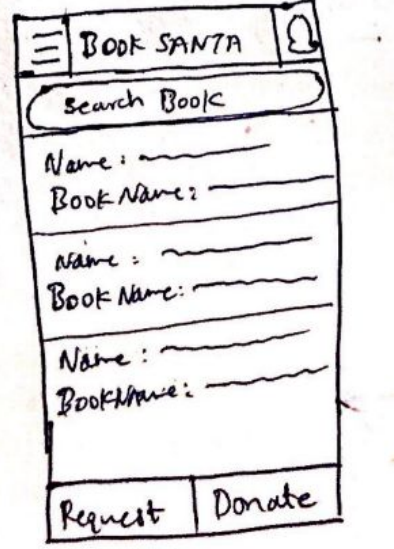 BOOK SANTA
Search Book
Name:
Book Name:
Name:
Book Name:
Name:
BookName:
Request Donate